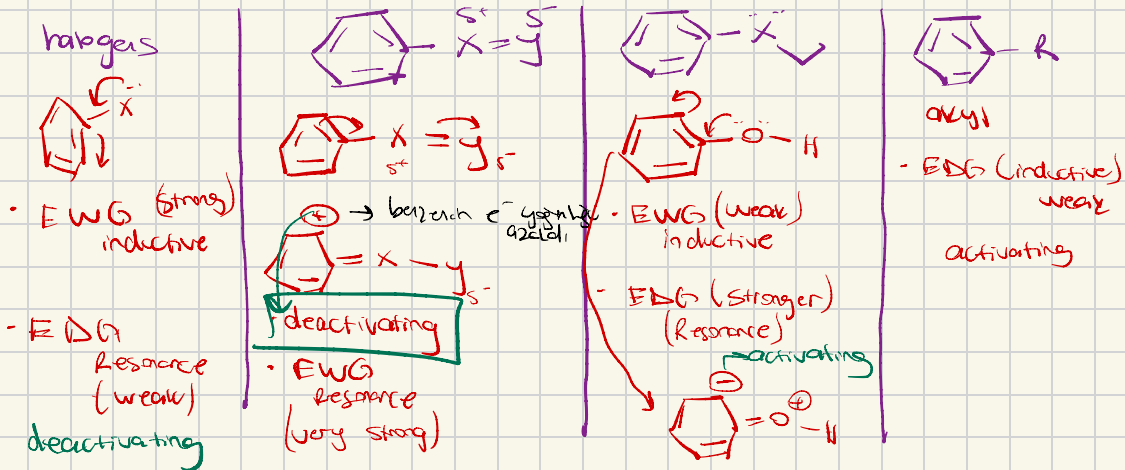 halogens
X
• EWG (strong)
inductive
• EDG
Resonance
(weak)
deactivating
δ+ δ-
X=y
X = y
δ+ δ-
⊕ → benzenin e⁻ yoğunluğu
azaldı
= X — y
δ-
deactivating
• EWG
Resonance
(very strong)
X
O — H
• EWG (weak)
inductive
- EDG (stronger)
(Resonance)
→activating
⊖ ⊕
=O—H
— R
alkyl
• EDG (inductive)
weak
activating